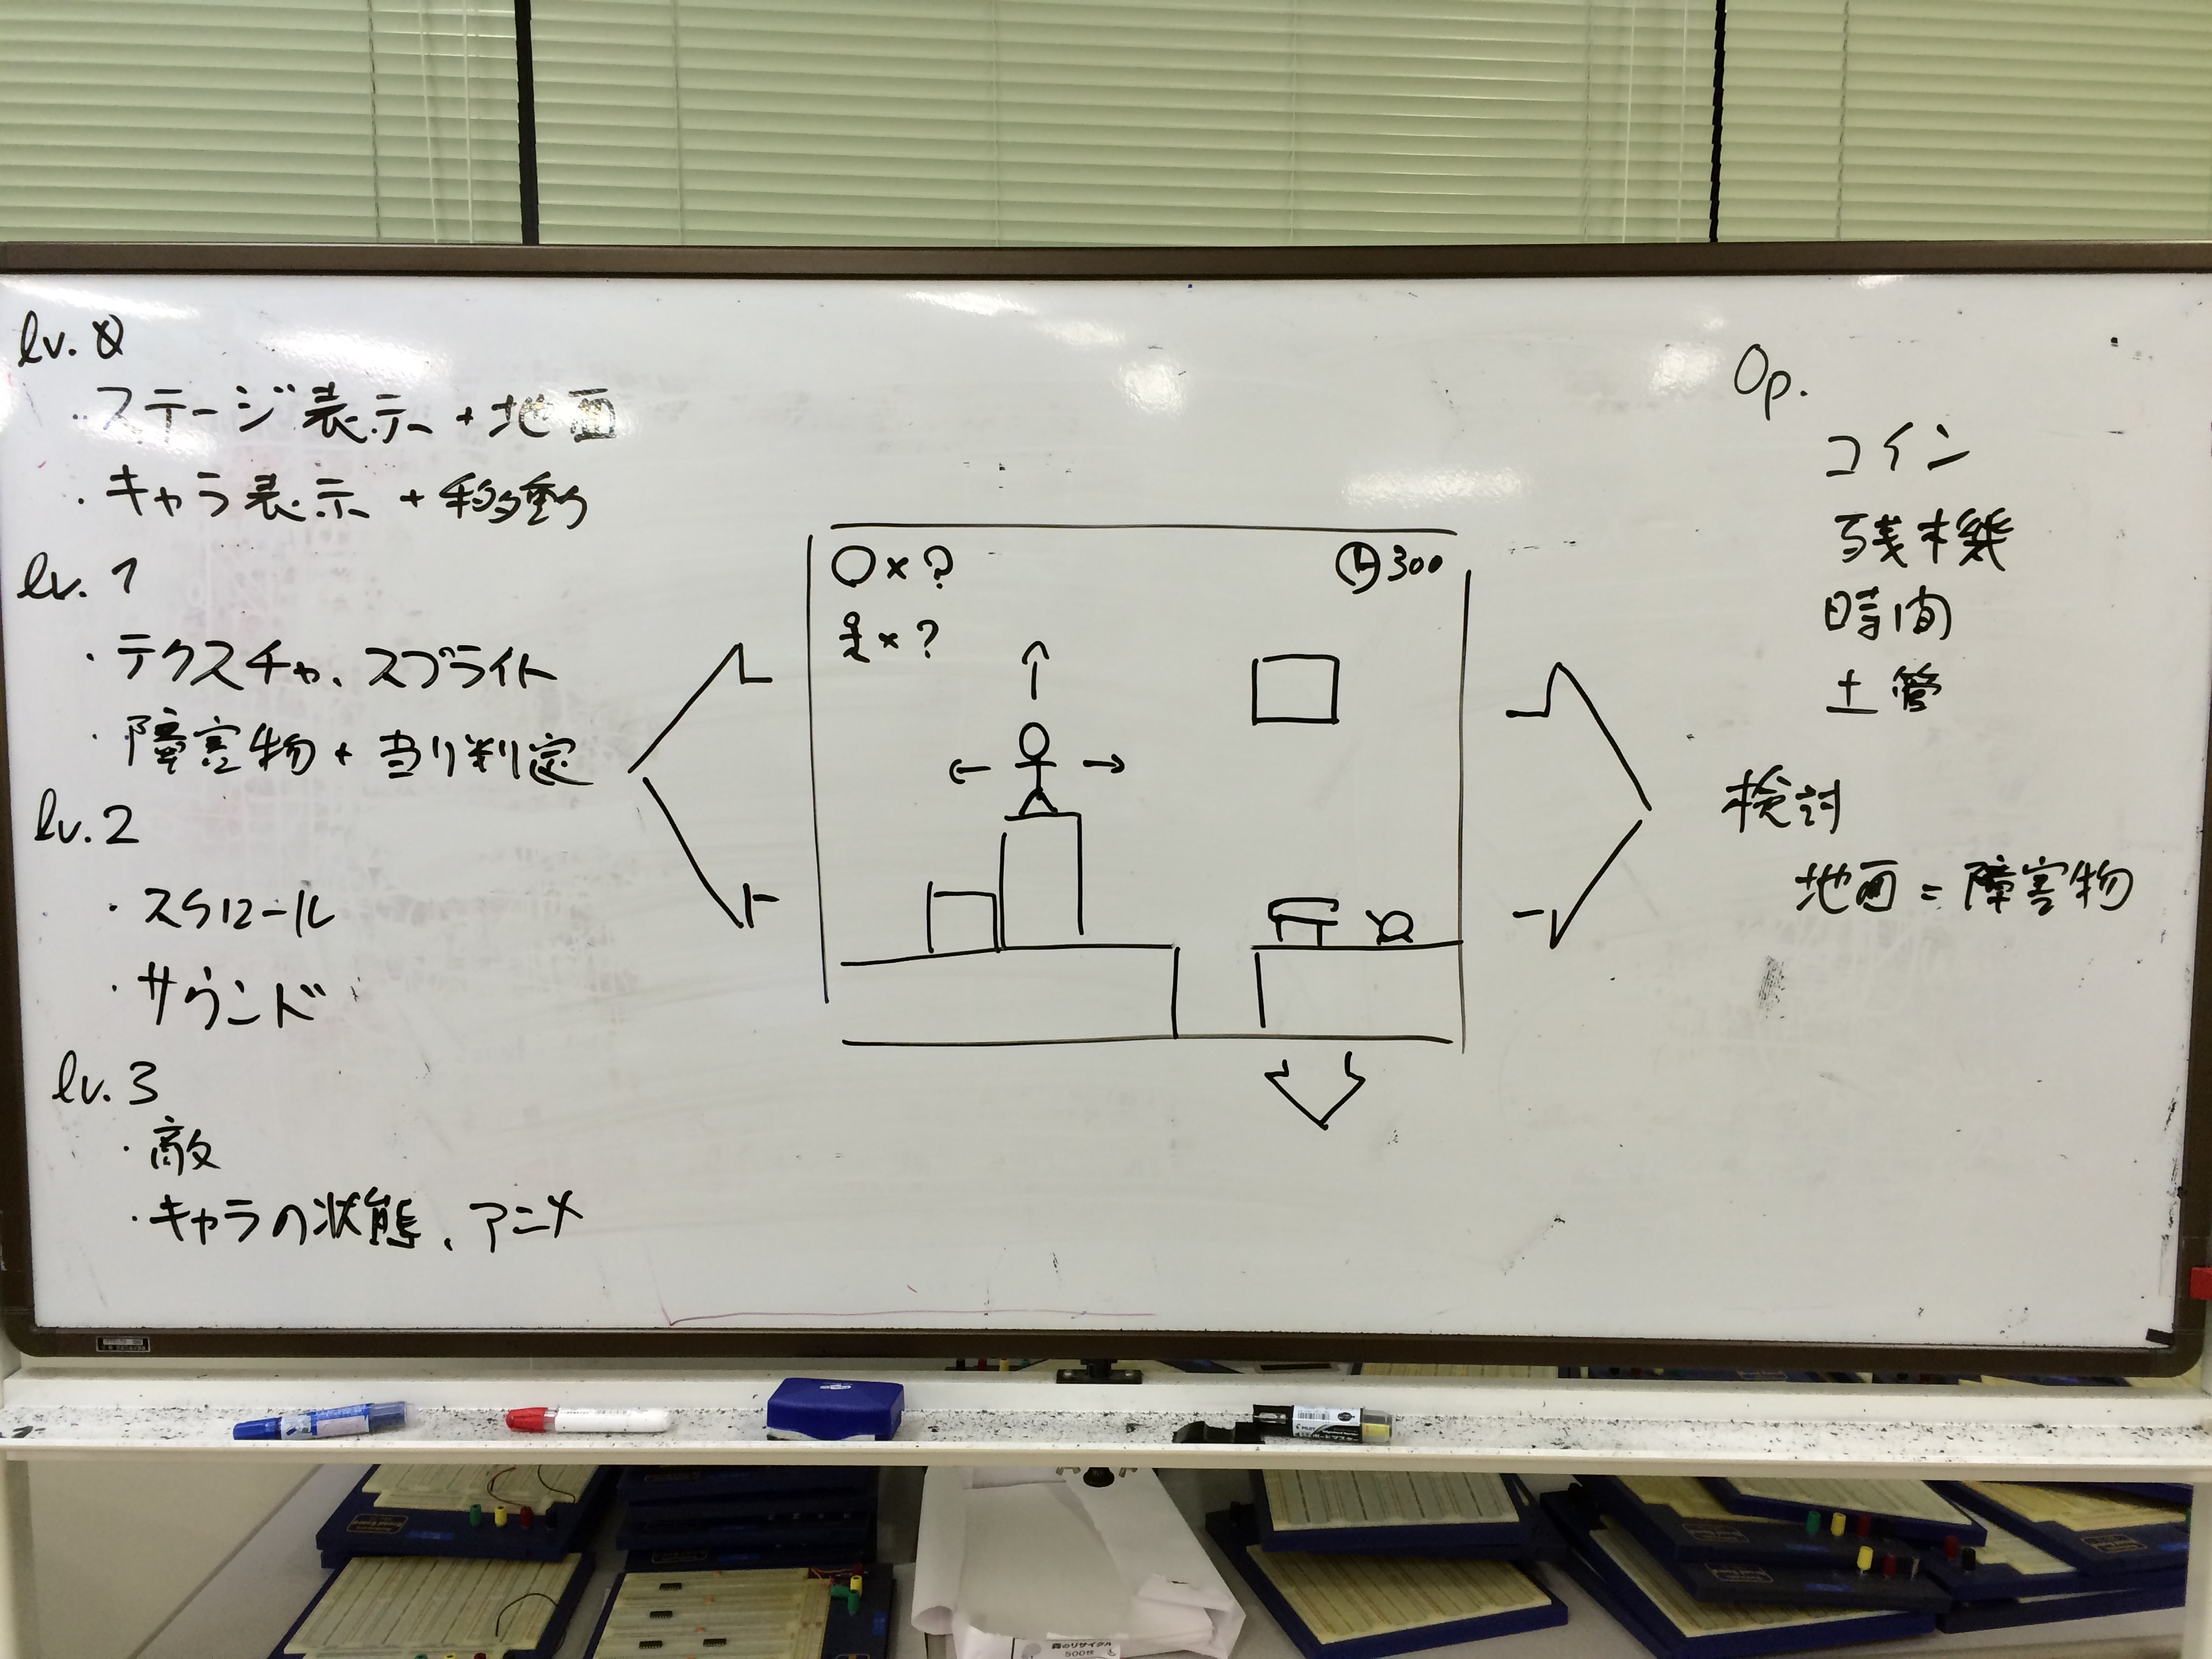 lv.0
・ステージ表示 + 地面
・キャラ表示 + 移動
lv.1
・テクスチャ、スプライト
・障害物 + 当り判定
lv.2
・スクロール
・サウンド
lv.3
・敵
・キャラの状態、アニメ
○×?
×?
300
Op.
コイン
残機
時間
土管
検討
地面=障害物
森のリサイクル
500枚